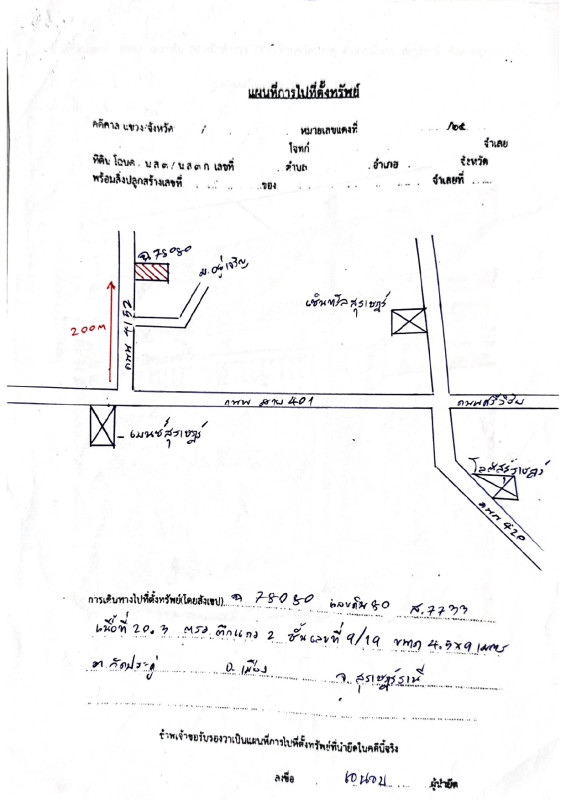 แผนที่การไปที่ตั้งทรัพย์
คดีศาล แขวง/จังหวัด / หมายเลขแดงที่ /๒๕
โจทก์ จำเลย
ที่ดิน โฉนด น.ส.๓/น.ส.๓ ก เลขที่ ตำบล อำเภอ จังหวัด
พร้อมสิ่งปลูกสร้างเลขที่ ของ จำเลยที่
ฉ 78080
ม.อยู่เจริญ
200M
ถนน 4152
เซ็นทรัลสุราษฎร์
ถนน สาย 401
ถนนศรีวิชัย
เบนซ์สุราษฎร์
โลตัสสุราษฎร์
ถนน 420
การเดินทางไปที่ตั้งทรัพย์(โดยสังเขป) ฉ 78080 เลขดิน 80 ส.7733
เนื้อที่ 20.3 ตรว ตึกแถว 2 ชั้น เลขที่ 9/19 ขนาด 4.5x9 เมตร
ต.วัดประดู่ อ.เมือง จ.สุราษฎร์ธานี
ข้าพเจ้าขอรับรองว่าเป็นแผนที่การไปที่ตั้งทรัพย์ที่นำยึดในคดีนี้จริง
ลงชื่อ ผู้นำยึด